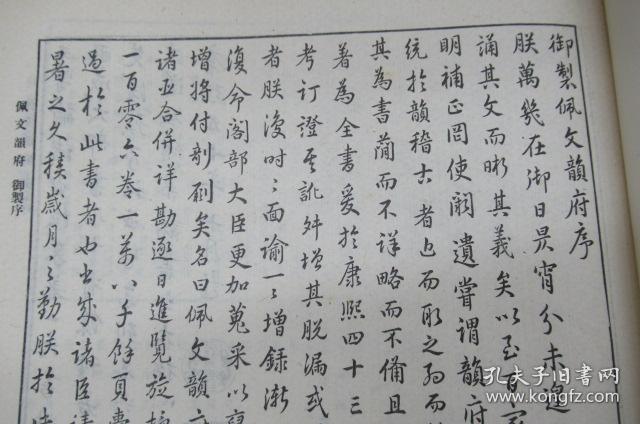 御製佩文韻府序
朕萬幾在御日昃宵分未遑
誦其文而晰其義矣以至百家
明補正罔使闕遺嘗謂韻府
統於韻稽古者近而取之約而
其為書簡而不詳略而不備且
著為全書爰於康熙四十三
考訂證其訛舛增其脫漏或
者朕復時〻面諭一〻增錄漸
復命閣部大臣更加蒐采以裒
增將付剞劂矣名曰佩文韻府
諸臣合併詳勘逐日進覽旋
一百零六卷一萬八千餘頁
過於此書者也書成諸臣請
暑之久積歲月之勤朕於
佩文韻府 御製序
孔夫子旧书网